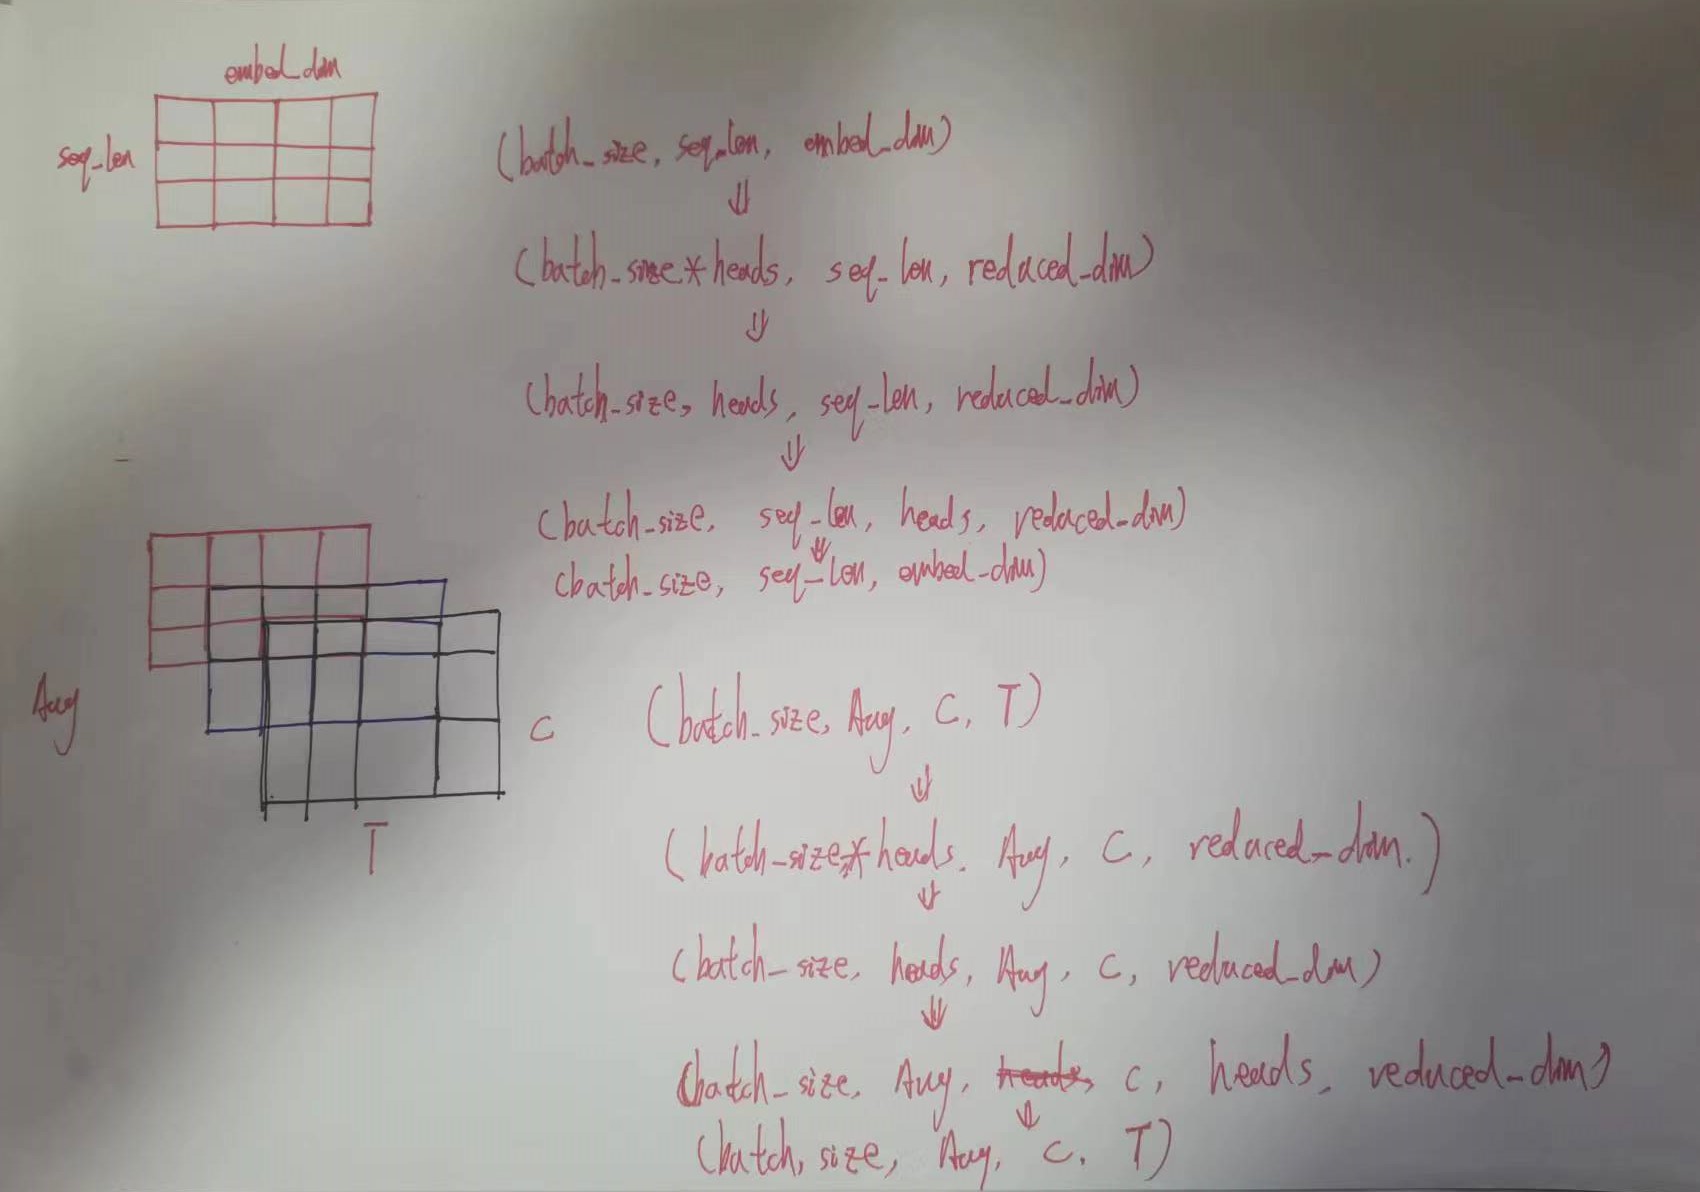 embed_dim
seq_len
(batch_size, seq_len, embed_dim)
⇓
(batch_size*heads, seq_len, reduced_dim)
⇓
(batch_size, heads, seq_len, reduced_dim)
⇓
(batch_size, seq_len, heads, reduced_dim)
⇓
(batch_size, seq_len, embed_dim)
Aug
C
T
(batch_size, Aug, C, T)
⇓
(batch_size*heads, Aug, C, reduced_dim.)
⇓
(batch_size, heads, Aug, C, reduced_dim)
⇓
(batch_size, Aug, heads, C, heads, reduced_dim)
⇓
(batch, size, Aug, C, T)